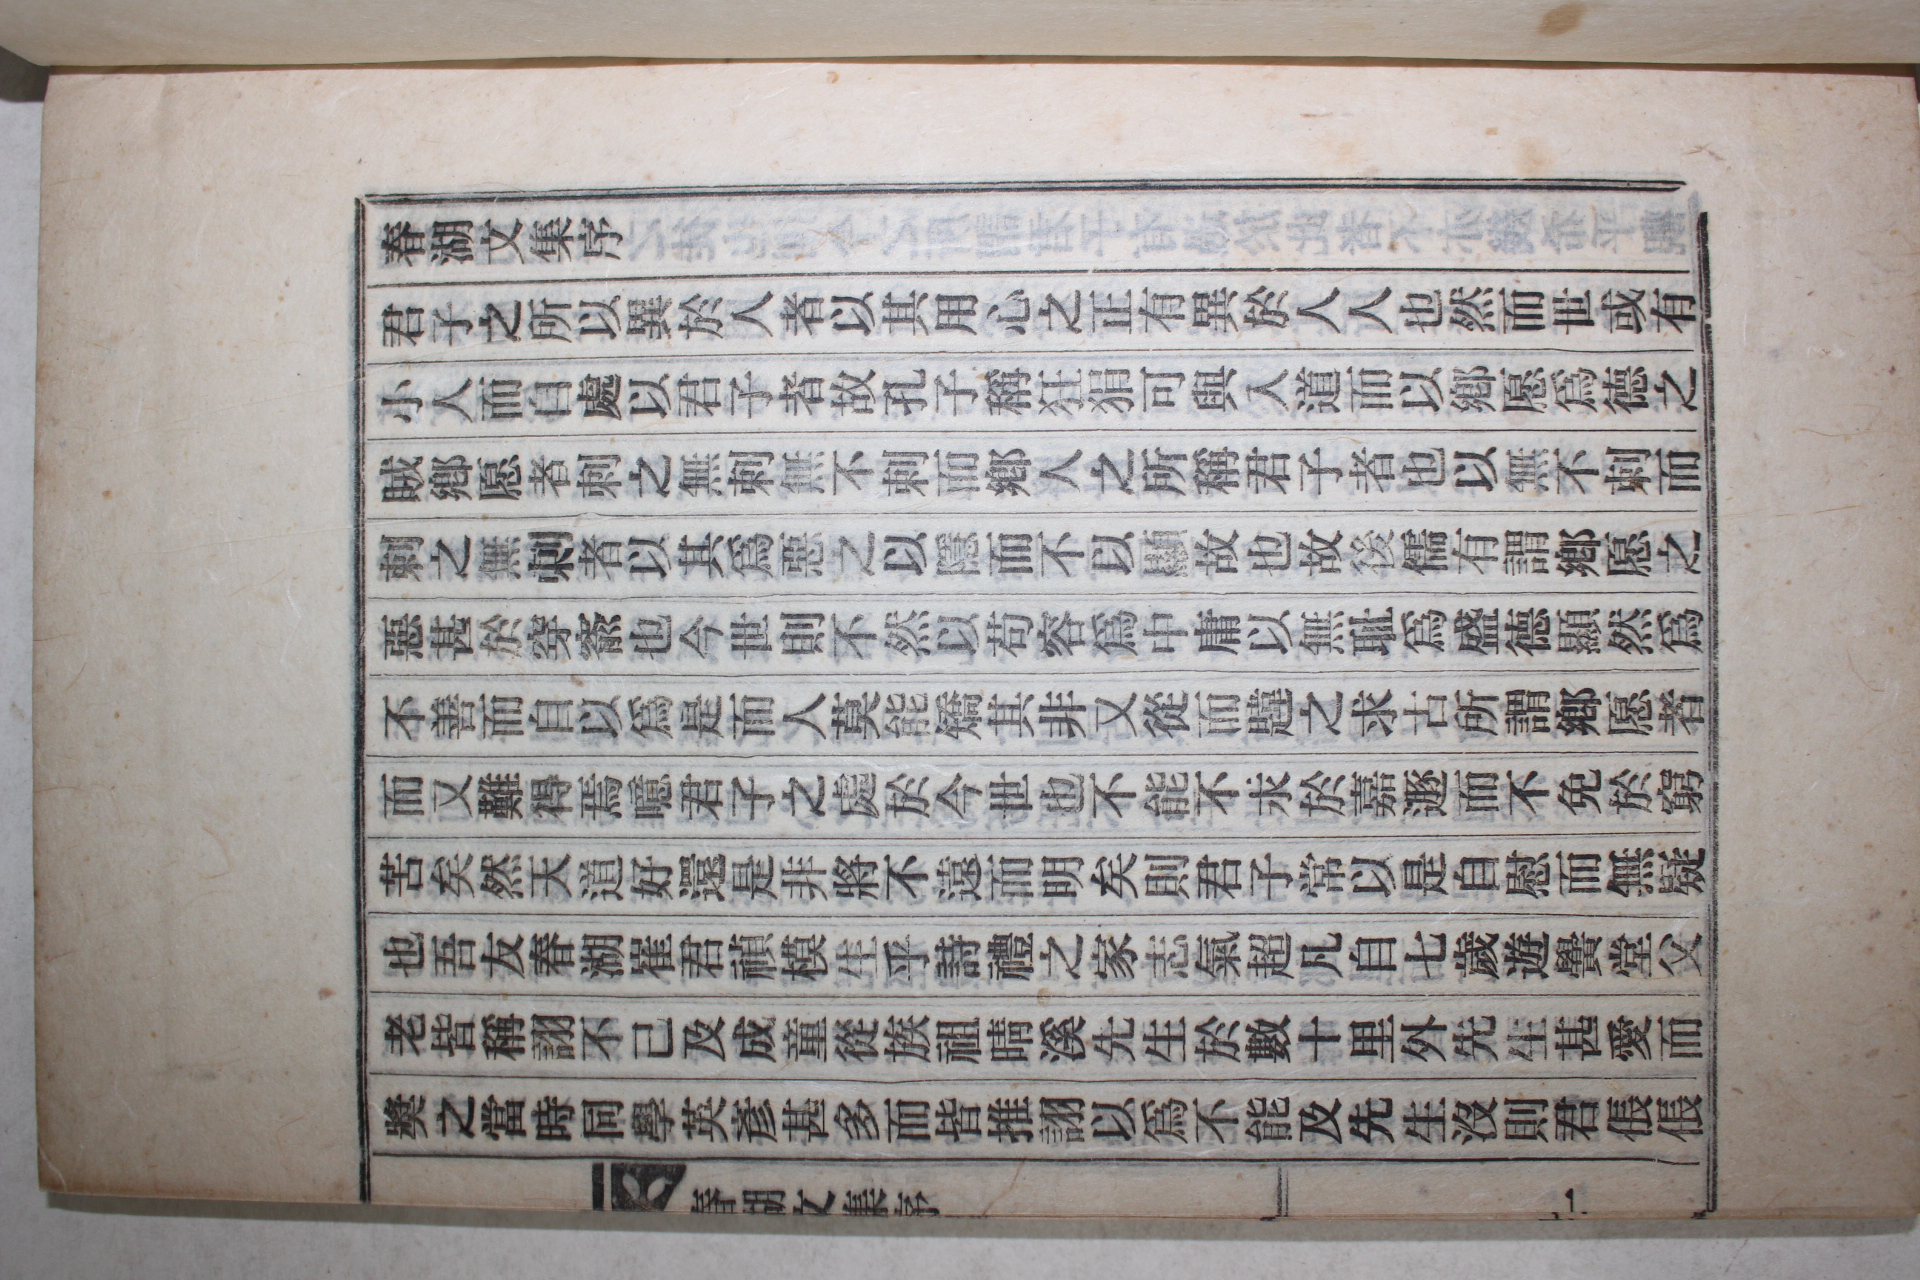 春湖文集序
君子之所以異於人者以其用心之正有異於人人也然而世或有
小人而自處以君子者故孔子稱狂狷可與入道而以鄕愿爲德之
賊鄕愿者刺之無刺無不刺而鄕人之所稱君子者也以無不刺而
刺之無刺者以其爲惡之以隱而不以顯故也故後儒有謂鄕愿之
惡甚於穿窬也今世則不然以苟容爲中庸以無耻爲盛德顯然爲
不善而自以爲是而人莫能矯其非又從而韙之求古所謂鄕愿者
而又難得焉噫君子之處於今世也不能不求於嘉遯而不免於窮
苦矣然天道好還是非將不遠而明矣則君子常以是自慰而無疑
也吾友春湖崔君禎模生乎詩禮之家志氣超凡自七歲遊黌堂父
老皆稱詡不已及成童從族祖晴溪先生於數十里外先生甚愛而
奬之當時同學英彥甚多而皆推詡以爲不能及先生沒則君倀倀
春湖文集序
一